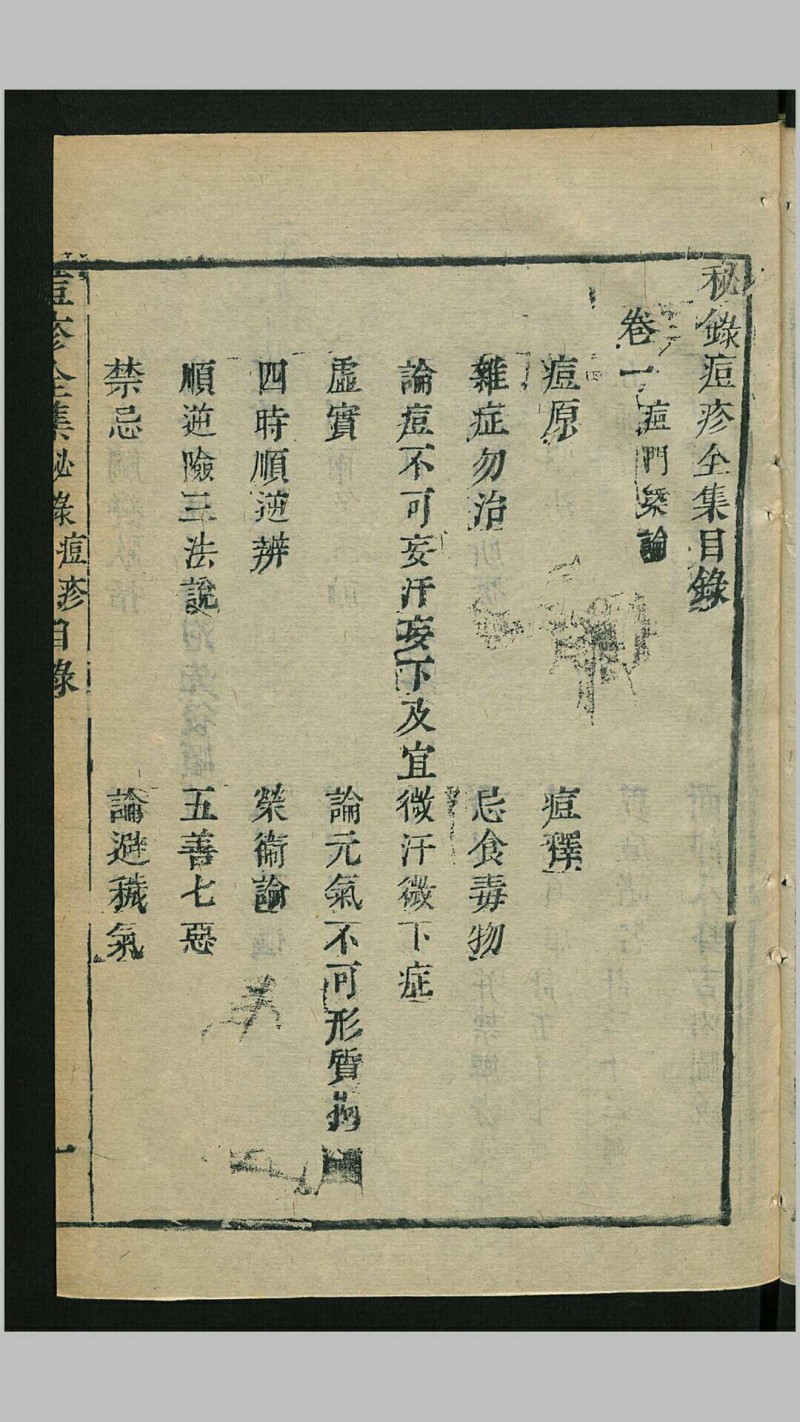 秘錄痘疹全集目錄
卷一 痘門槩論
痘原 痘釋
雜症勿治 忌食毒物
論痘不可妄汗妄下及宜微汗微下症
虛實 論元氣不可形質拘
四時順逆辨 榮衛論
順逆險三法說 五善七惡
禁忌 論避穢氣
痘疹全集秘錄痘疹目錄 一